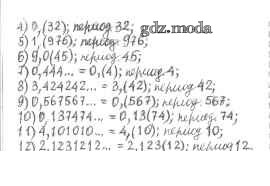 4) 0,(32); период 32; gdz.moda
5) 1,(976); период 976;
6) 9,0(45); период 45;
7) 0,444... = 0,(4); период 4;
8) 3,424242... = 3,(42); период 42;
9) 0,567567... = 0,(567); период 567;
10) 0,137474... = 0,13(74); период 74;
11) 4,101010... = 4,(10); период 10;
12) 2,1231212... = 2,123(12); период 12.